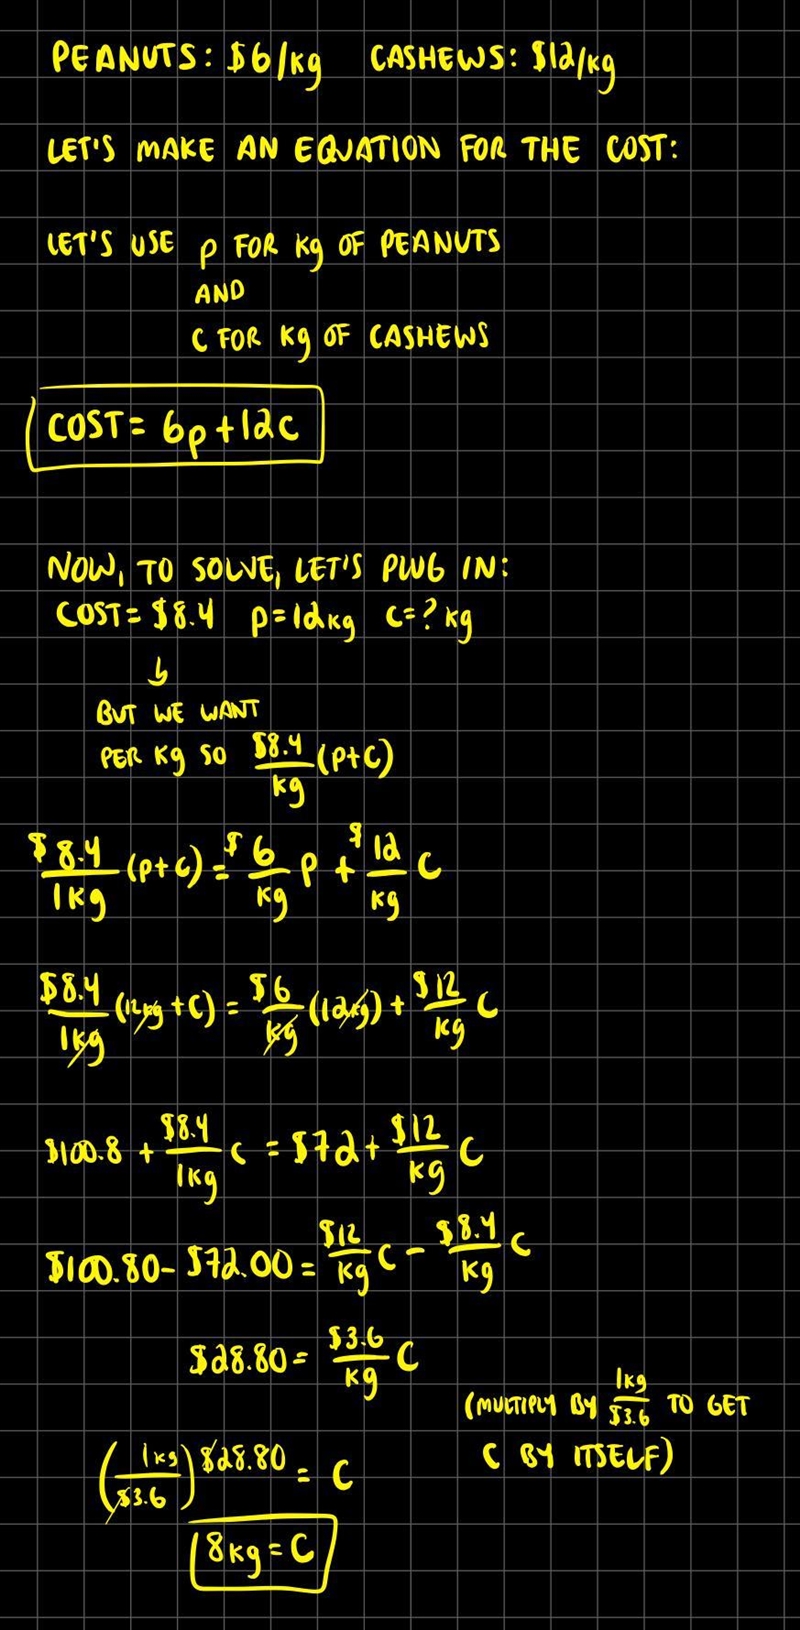 PEANUTS: $6/kg CASHEWS: $12/kg
LET'S MAKE AN EQUATION FOR THE COST:
LET'S USE p FOR kg OF PEANUTS
AND
C FOR kg OF CASHEWS
COST = 6p + 12C
NOW, TO SOLVE, LET'S PLUG IN:
COST = $8.4 P = 12kg C = ? kg
↳
BUT WE WANT
PER kg SO $8.4/kg (P+C)
$8.4/1kg (P+C) = $6/kg P + $12/kg C
$8.4/1kg (12kg + C) = $6/kg (12kg) + $12/kg C
$100.8 + $8.4/1kg C = $72 + $12/kg C
$100.80 - $72.00 = $12/kg C - $8.4/kg C
$28.80 = $3.6/kg C
(MULTIPLY BY 1kg/$3.6 TO GET
C BY ITSELF)
(1kg/$3.6) $28.80 = C
8kg = C